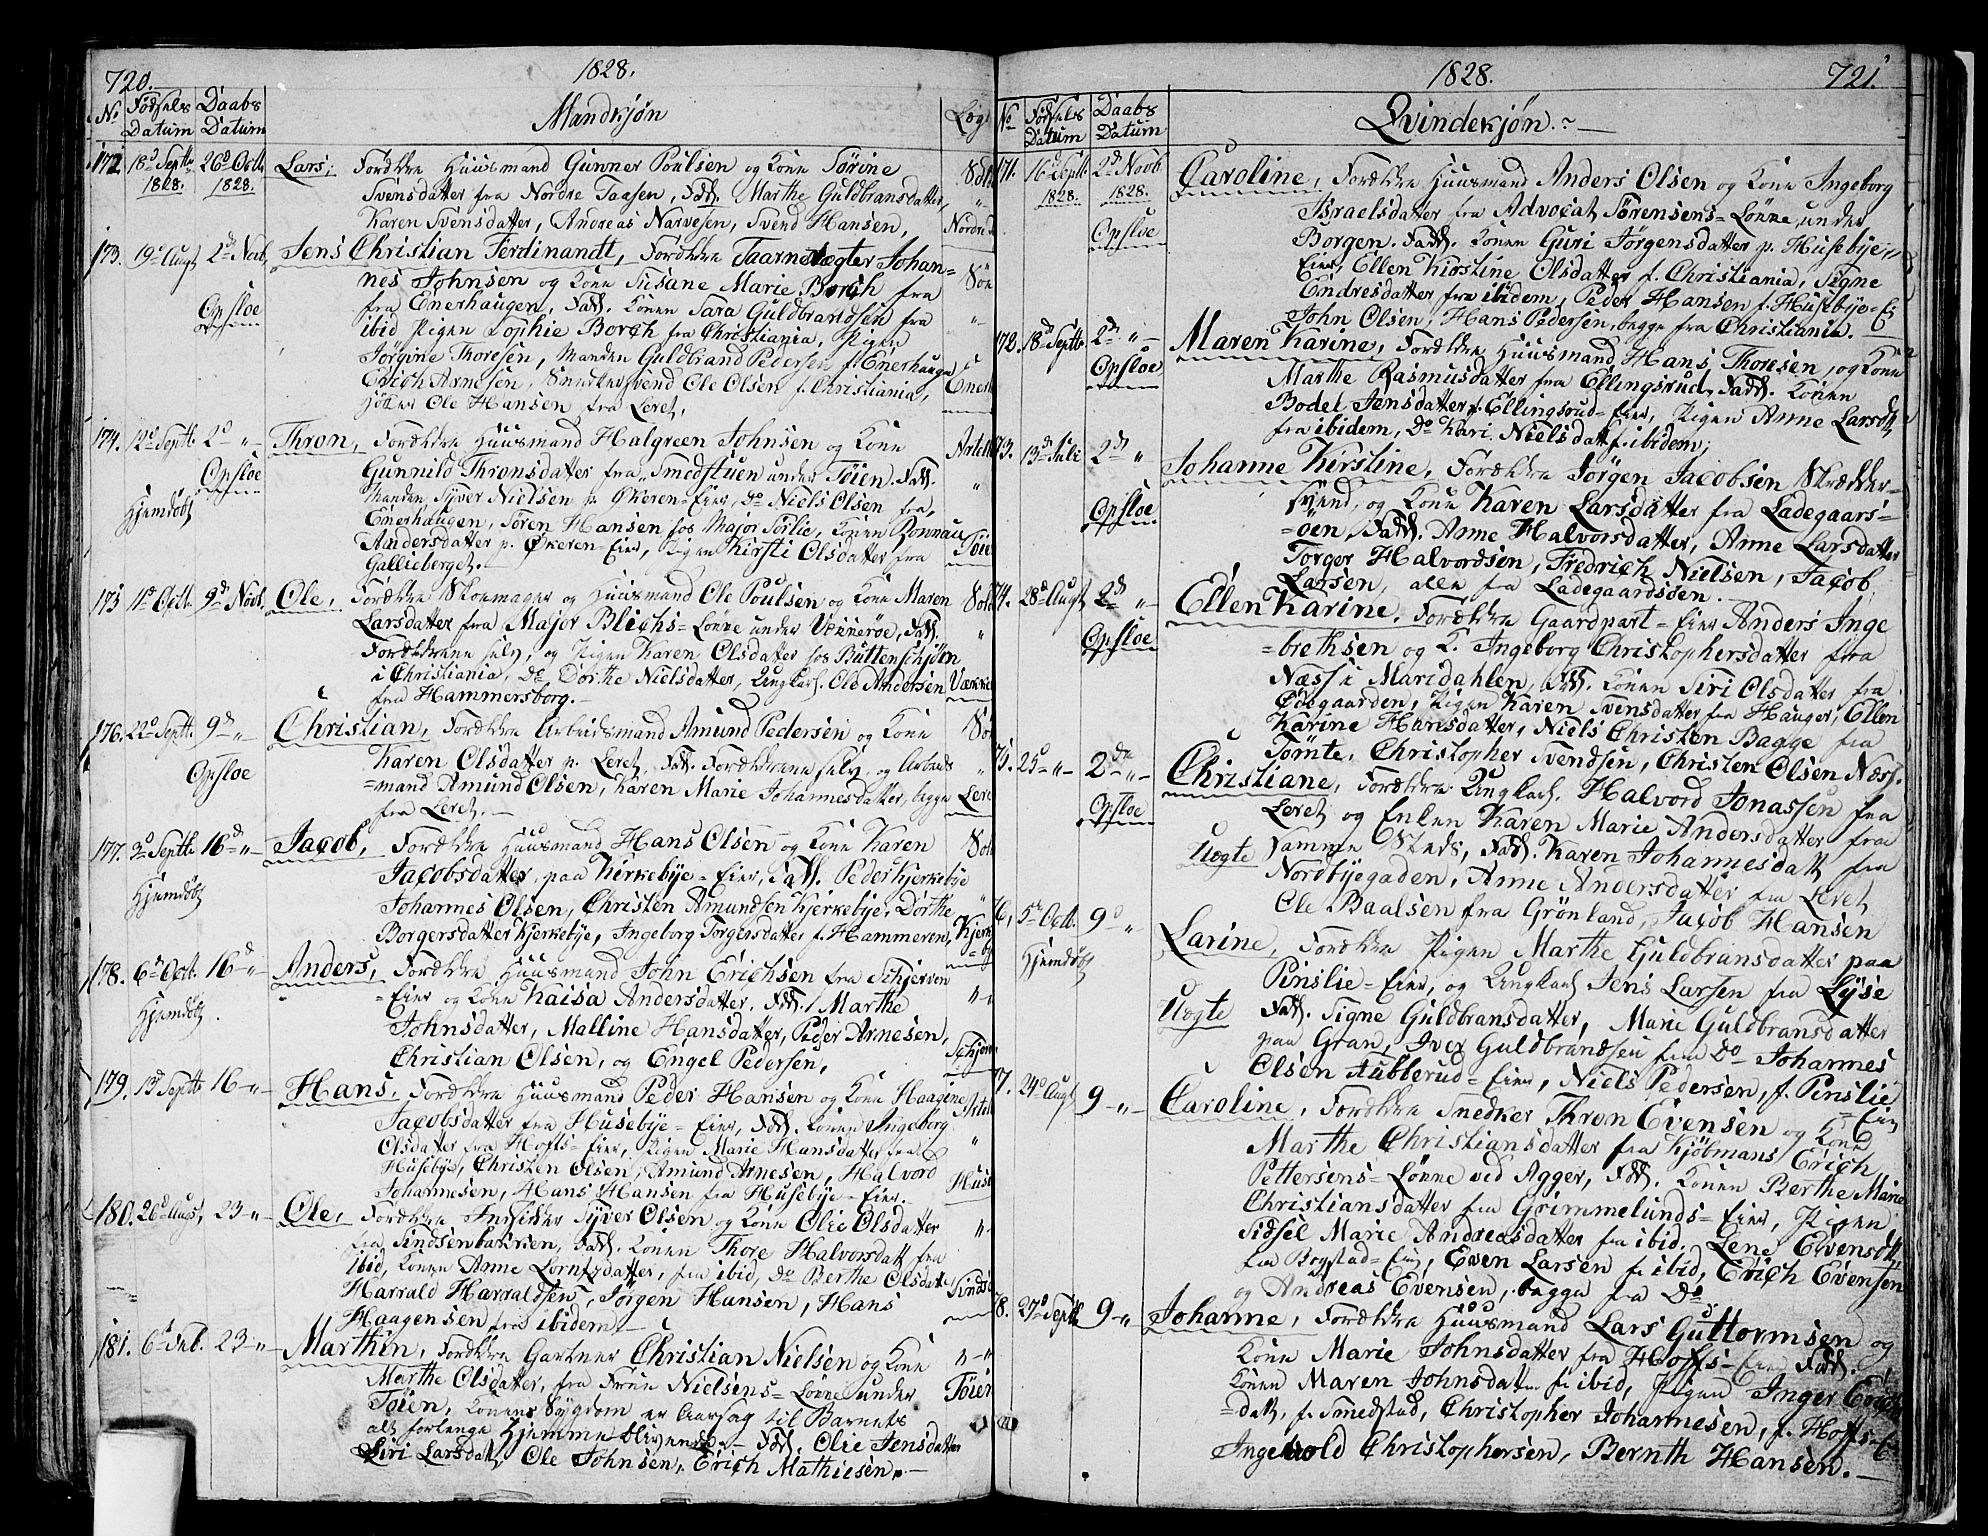 720. 1828.
No Fødsels Datum Daabs Datum Mandkjøn
172 18d Septbr 1828. 26d Octbr 1828. Lars, Forældre Huusmand Gunner Poulsen og Kone Sørine
Svensdatter fra Nordre Taasen, Fadd. Marthe Guldbransdatter,
Karen Svensdatter, Andreas Narvesen, Svend Hansen,
173. 19d Augt 2d Novb. Opsloe Jens Christian Ferdinandt, Forældre Taarnvægter Johan=
nes Johnsen og Kone Susane Marie Borch fra
fra Enerhaugen, Fadd. Konen Sara Guldbrandsen fra
ibid Pigen Sophie Borch fra Christiania, Pigen
Jørgine Thoresen, Manden Guldbrand Pedersen f. Enerhaugen
Erich Arnesen, Smedsvend Ole Olsen f. Christiania,
Ole Hansen fra Leret,
174. 12d Septb 2d „ Opsloe Hjemdøbt Thron, Forældre Huusmand Halgreen Johnsen og Kone
Gunnild Thronsdatter fra Smedstuen under Tøien. Fadd.
Manden Syver Nielsen p. Økeren=Eier, Do Niels Olsen fra
Enerhaugen, Søren Hansen hos Major Sørlie, Konen Ronnau
Andersdatter p. Økeren=Eier, Pigen Kirsti Olsdatter fra
Gallieberget.
175 11d Octb. 9d Novb. Ole, Forældre Skoemager og Huusmand Ole Poulsen og Kone Maren
Larsdatter fra Major Blichs=Lønne under Vækkerøe, Fadd.
Forældrene selv, og Pigen Karen Olsdatter hos Buttenschjøn
i Christiania, Do Dorthe Nielsdatter, Ungkarl Ole Andersen
fra Hammersborg.
176. 22d Septb. 9d „ Opsloe Christian, Forældre Arbeidsmand Amund Pedersen og Kone
Karen Olsdatter p. Leret, Fadd. Forældrene selv, og Arbeids
=mand Amund Olsen, Karen Marie Johannesdatter, begge
fra Leret.
177. 3d Septb 16d „ Hjemdøbt Jacob, Forældre Huusmand Hans Olsen og Kone Karen
Jacobsdatter paa Kirkebye=Eier, Fadd. Peder Kjerkebye
Johannes Olsen, Christen Amundsen Kjerkebye, Dorthe
Borgersdatter Kjerkebye, Ingeborg Torgersdatter f. Hammeren,
178. 6d Octb. 16d „ Hjemdøbt Anders, Forældre Huusmand John Erichsen fra Schjerven
=Eier og Kone Kaisa Andersdatter, Fadd. Marthe
Johnsdatter, Malline Hansdatter, Peder Arnesen,
Christian Olsen, og Engel Pedersen,
179. 13d Septb 16 „ Hans, Forældre Huusmand Peder Hansen og Kone Haagine
Jacobsdatter fra Husebye=Eier, Fadd. Konen Ingeborg
Olsdatter fra Hofs=Eier, Pigen Marie Hansdatter fra
Husebye, Christen Olsen, Amund Arnesen, Halvord
Johannesen, Hans Hansen fra Husebye=Eier.
180. 26d Augt, 23 „ Ole, Forældre Inderster Syver Olsen og Kone Olie Olsdatter
fra Sindsenbakken, Fadd. Konen Thore Halvorsdatt fra
ibid, Konen Anne Lorntzdatter, fra ibid, Do Berthe Olsdatter
Harrald Harraldsen, Jørgen Hansen, Hans
Haagensen fra ibidem.
181. 6d Feb. 23 „ Marthin, Forældre Gartner Christian Nielsen og Kone
Marthe Olsdatter, fra Frue Nielsens=Lønne under
Tøien, Konens Sygdom er Aarsag til Barnets
alt forlange Hjemme Blivende. Fadd. Olie Jensdatter
Siri Larsdatt, Ole Johnsen, Erich Mathiesen.
1828. 721.
No Fødsels Datum Daabs Datum Qvindekjøn.
171. 16d Septb. 1828. 2d Novb 1828. Opsloe Caroline, Forældre Huusmand Anders Olsen og Kone Ingeborg
Israelsdatter fra Advocat Sørensens=Lønne, under
Borgen. Fadd. Konen Guri Jørgensdatter p. Husebye
Eier, Ellen Kirstine Olsdatter f. Christiania, Signe
Endresdatter fra ibidem, Peder Hansen f. Husebye=Ei
John Olsen, Hans Pedersen, begge fra Christiania.
172. 18d Septb 2d „ Opsloe Maren Karine, Forældre Huusmand Hans Thoresen, og Kone
Marthe Rasmusdatter fra Ellingsrud, Fadd. Konen
Bodel Jensdatter f. Ellingsrud=Eier, Pigen Anne Larsdt
fra ibidem, Do Kari Nielsdatt f. ibidem;
73. 13d Juli 2d „ Opsloe Johanne Kirstine, Forældre Jørgen Jacobsen Skrædder=
svend, og Kone Karen Larsdatter fra Ladegaars=
=øen, Fadd. Anne Halvorsdatter, Anne Larsdatter
Torger Halvordsen, Fredrich Nielsen, Jacob
Larsen, alle fra Ladegaardsøen.
74. 28d Augt 2d „ Opsloe Ellen Karine, Forældre Gaardpart=Eier Anders Inge
=brethsen og K. Ingeborg Christophersdatter fra
Næss i Maridahlen, Fadd. Konen Siri Olsdatter fra
Ødegaarden, Pigen Karen Svensdatter fra Hauger, Ellen
Karine Hansdatter, Niels Christen Bagge fra
Tømte, Christopher Svendsen, Christen Olsen Næss.
75. 25d „ 2d „ Opsloe Christiane, Forældre Ungkarl. Halvord Jonassen fra
Leret og Enken Karen Marie Andersdatter fra
Uægte samme Steds, Fadd. Karen Johannesdatt fra
Nordbyegaden, Anne Andersdatter fra Leret
Ole Baalsen fra Grønland, Jacob Hansen
6. 5d Octb. 9d „ Hjemdøbt Larine, Forældre Pigen Marthe Guldbransdatter paa
Pinslie=Eier, og Ungkarl Jens Larsen fra Lyse
Uægte Fadd. Signe Guldbransdatter, Marie Guldbransdatter
paa Gran, Iver Guldbrandsen fra Do Johannes
Olsen Aubberud=Eier, Niels Pedersen, f. Pinslie
=Eier
7. 24d Augt 9 „ Caroline, Forældre Snedker Thron Evensen og Kone
Marthe Christiansdatter fra Kjøbmans Erich
Pettersens=Lønne ved Agger, Fadd. Konen Berthe Marie
Christiansdatter fra Grimmelunds=Eier, Pigen
Sidsel Marie Andreasdatter fra ibid, Lene Evensdtt,
fra Bogstad=Eier, Even Larsen f. ibid, Erich Evensen
og Andreas Evensen, begge fra Do
8. 27d Septb 9 „ Johanne, Forældre Huusmand Lars Guttormsen og
Kone Marie Johnsdatter fra Hoffs=Eier Fadd.
Konen Maren Johnsdatter f. ibid, Pigen Inger Erichs
=datt, f. Smedstad, Christopher Johannesen, f. Hoffs=E
Ingebold Christophersen, Bernth Hansen.